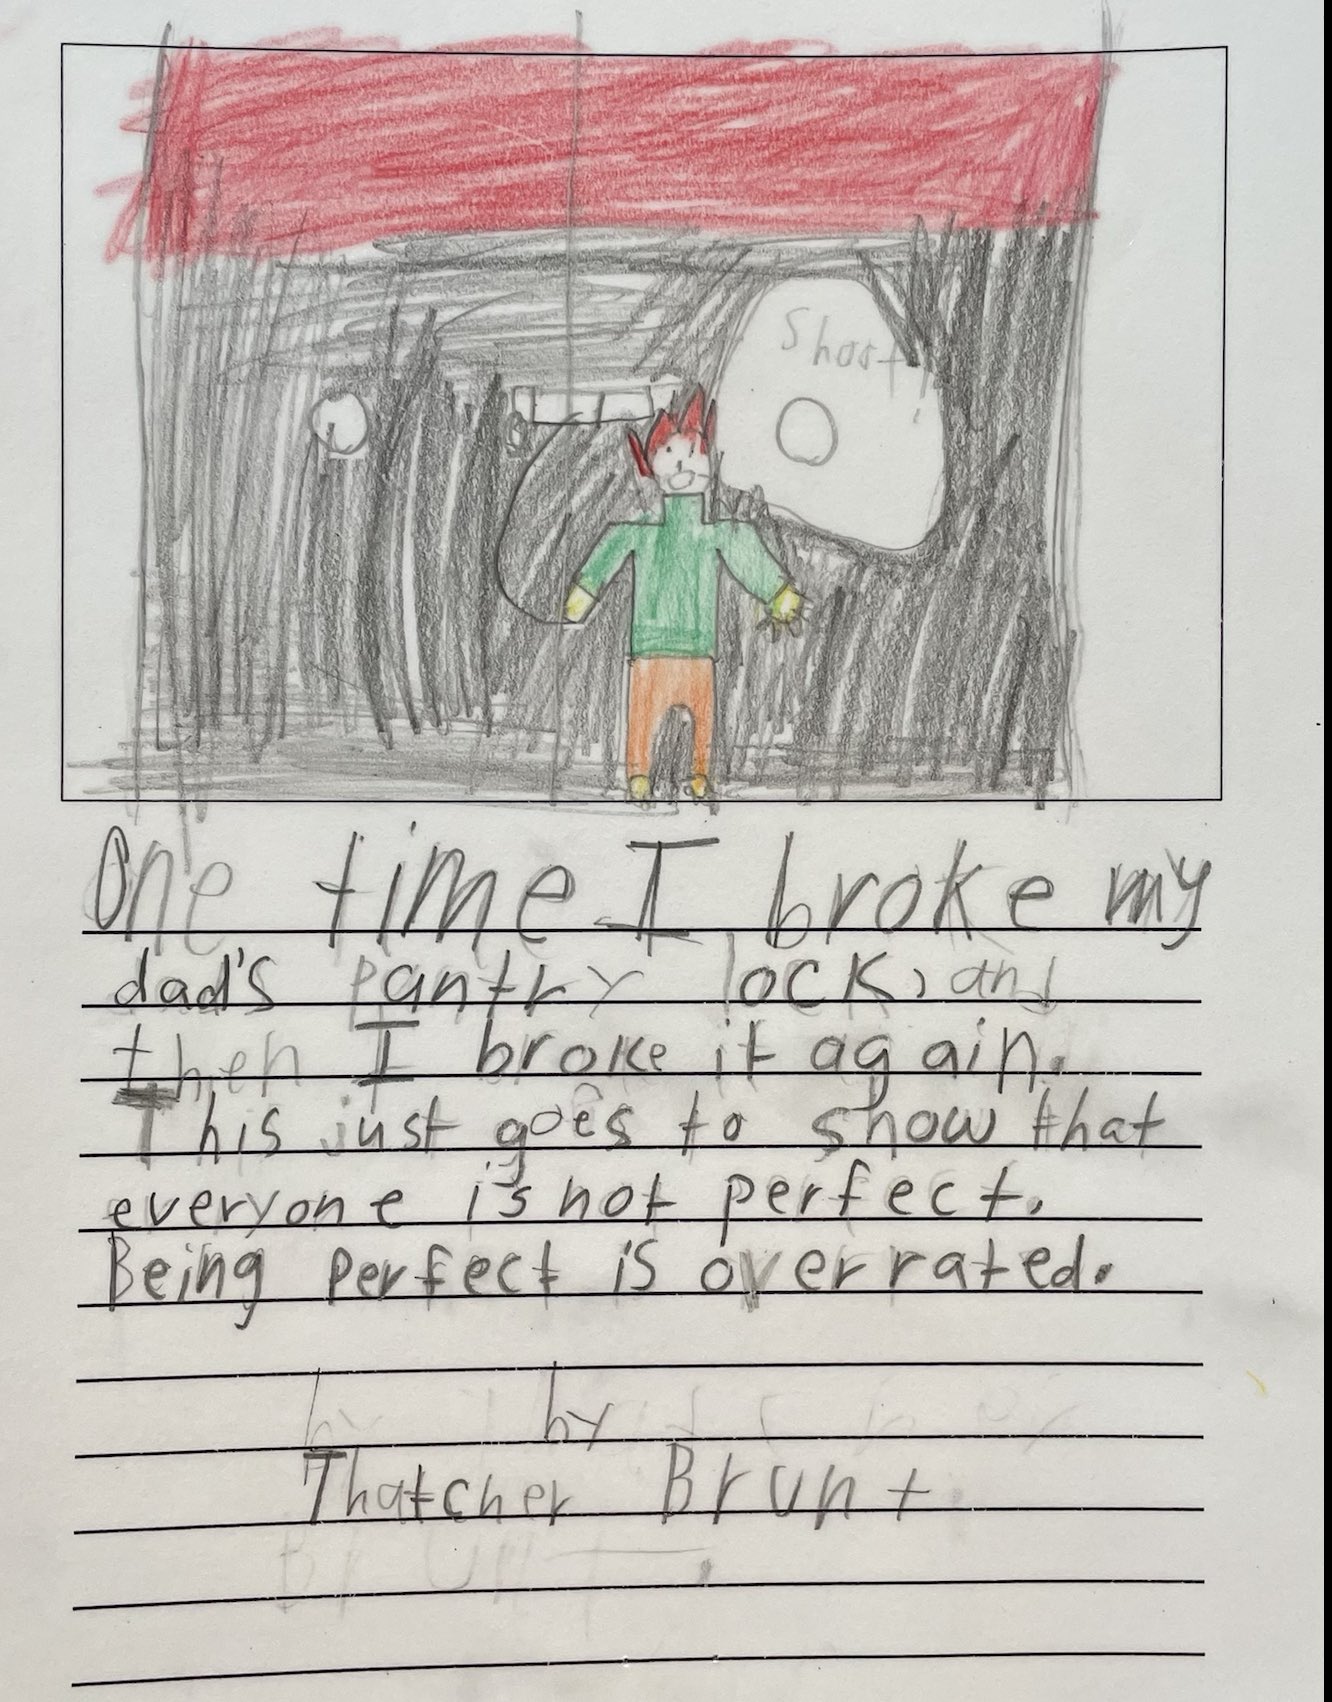 Shoot!
One time I broke my
dad's pantry lock, and
then I broke it again.
This just goes to show that
everyone is not perfect.
Being perfect is overrated.
by
Thatcher Brunt